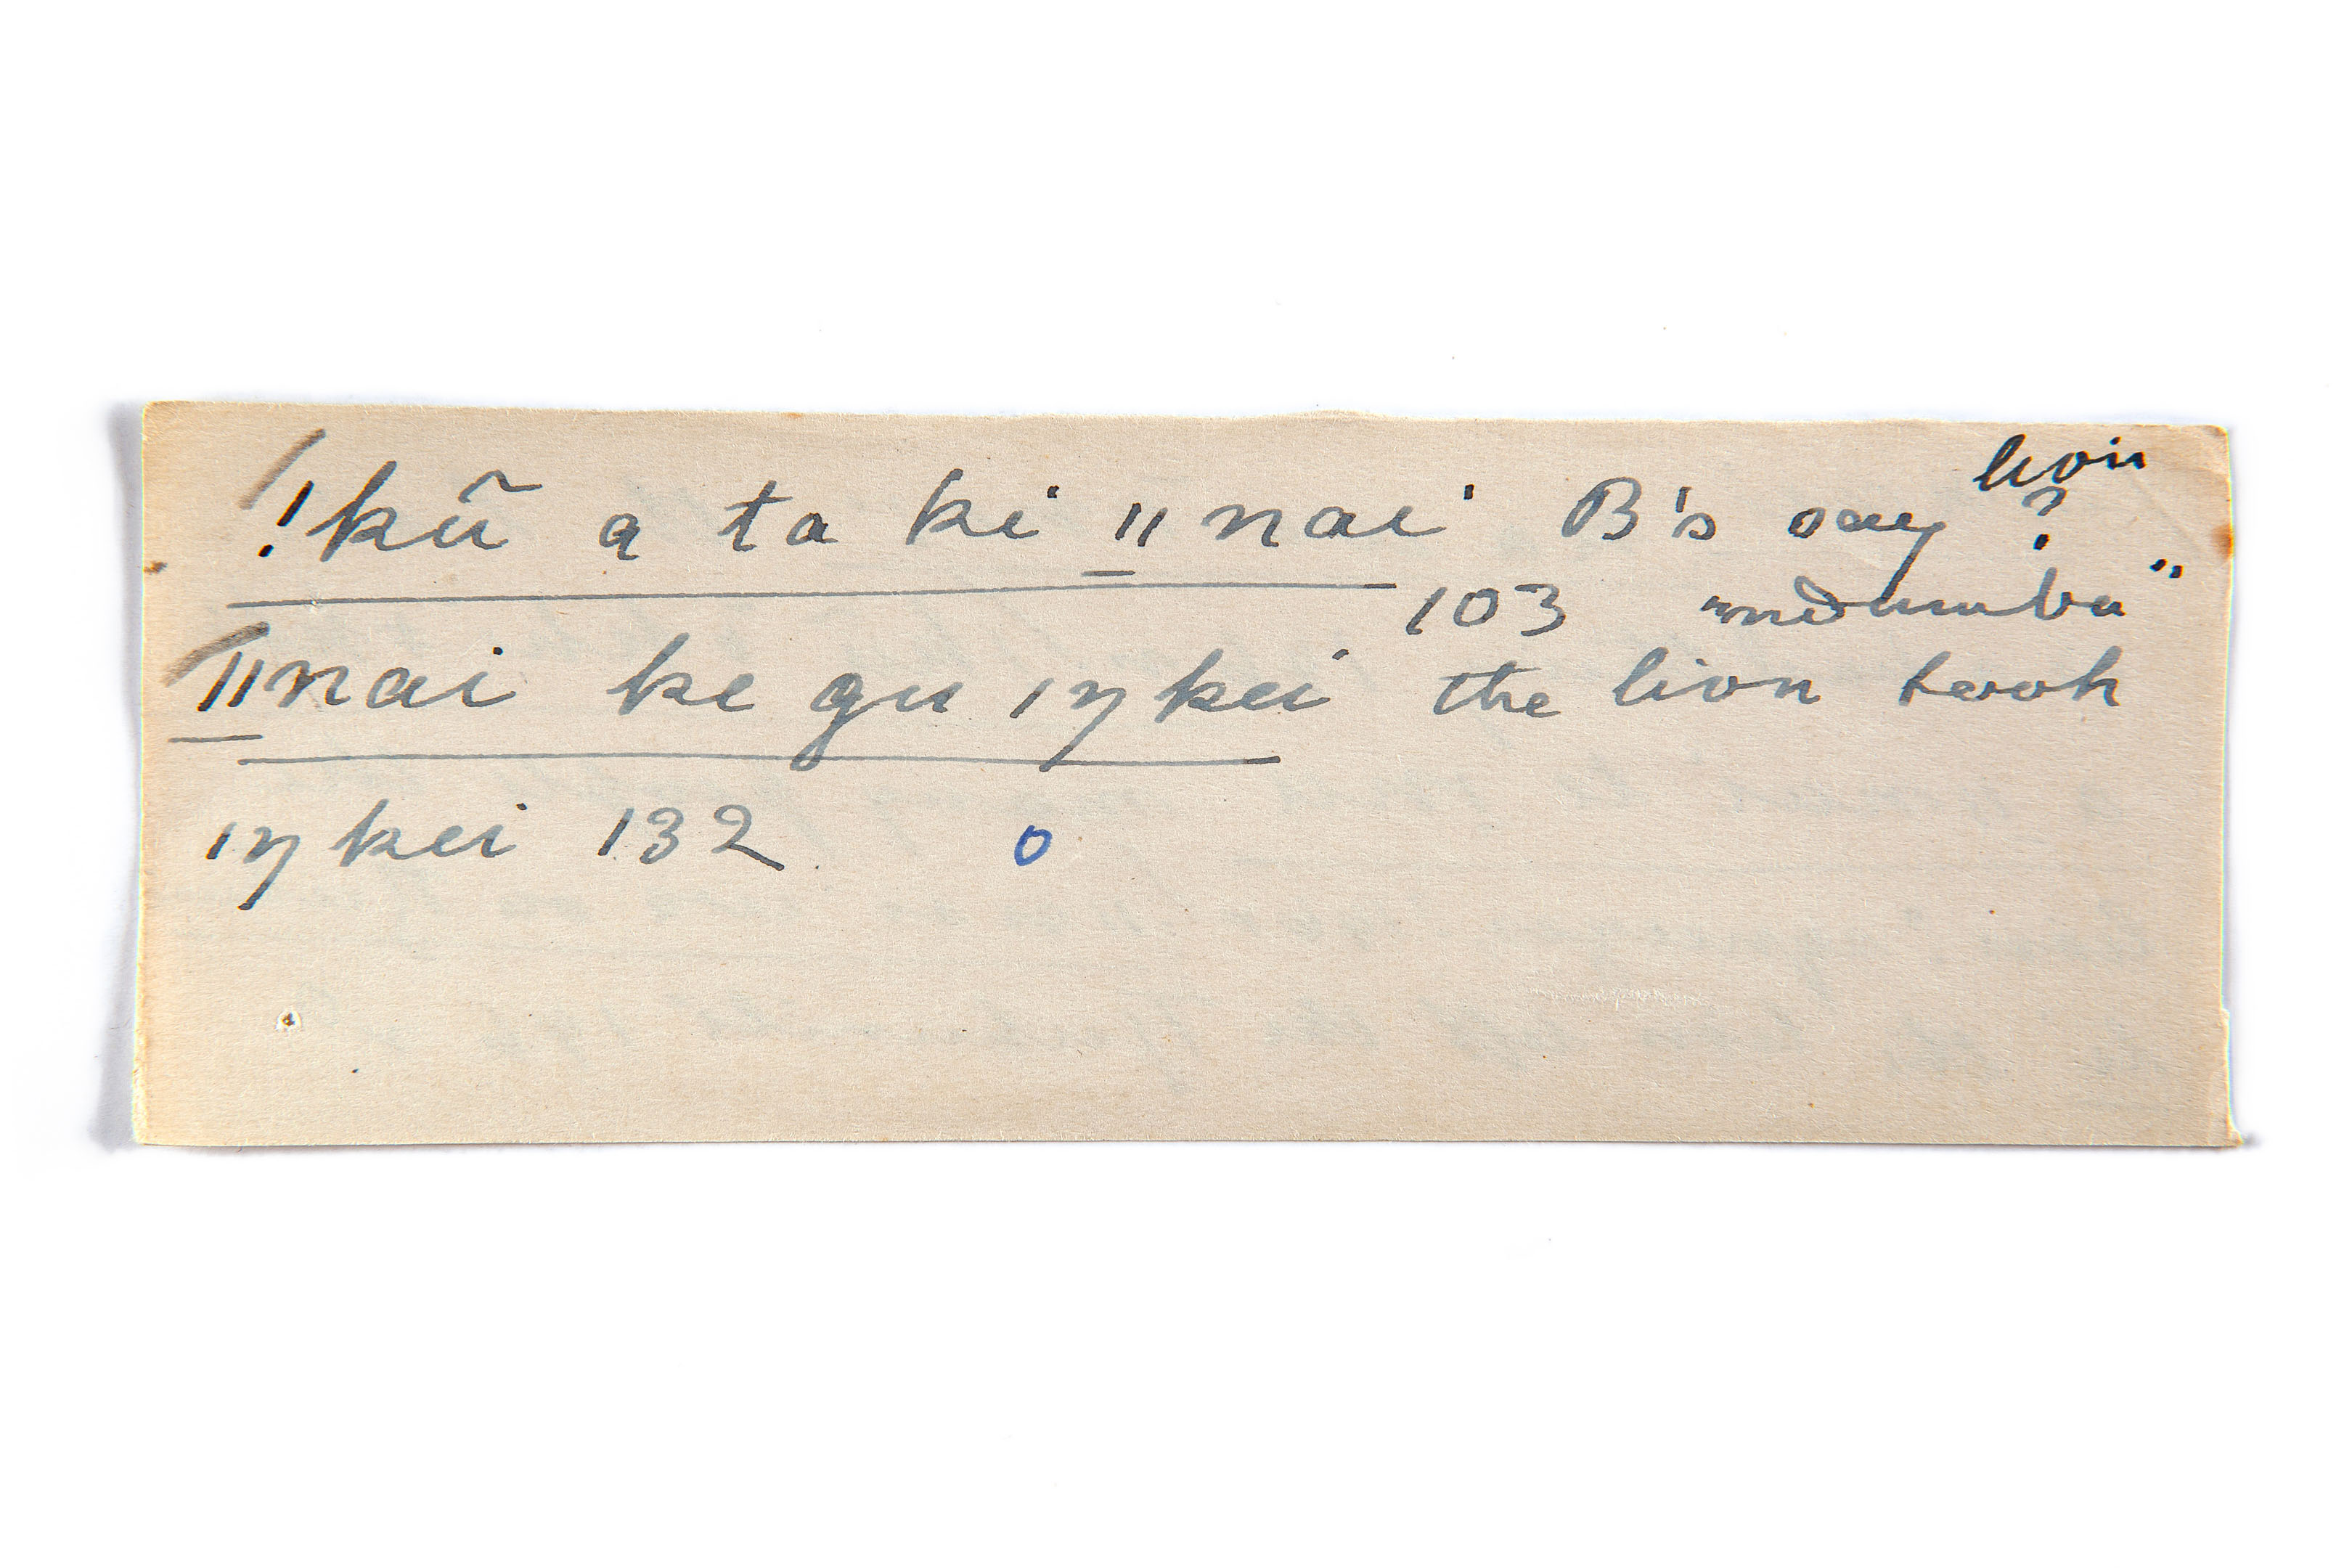 lion
!kũ a ta ki ǁnai B's say ?
103 "ndumba"
ǁnai ke gu ıŋkei the lion took
ıŋkei 132 o